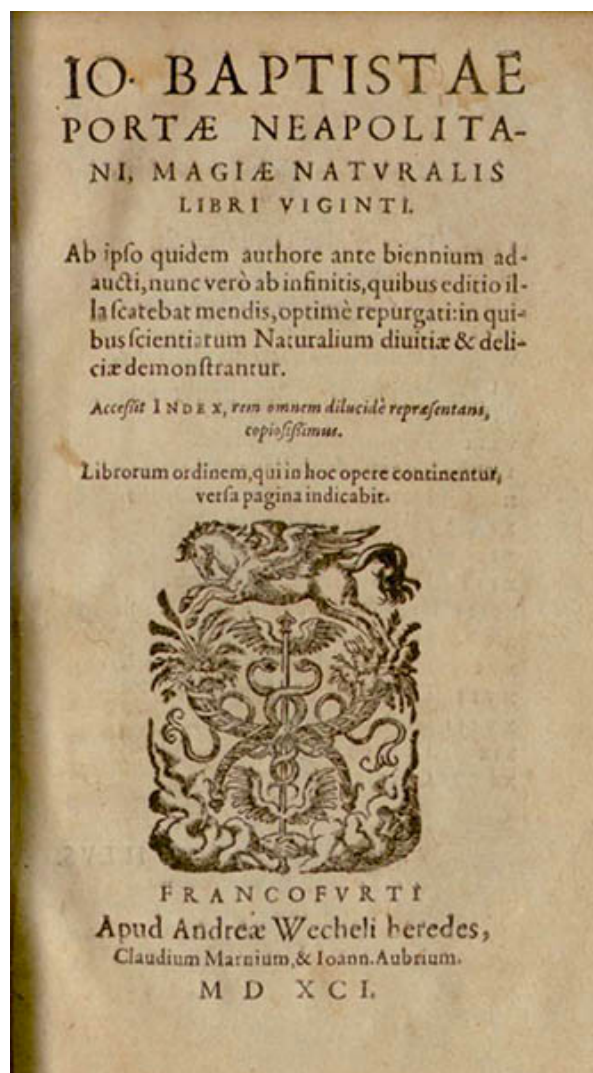 IO. BAPTISTAE
PORTÆ NEAPOLITA-
NI, MAGIÆ NATVRALIS
LIBRI VIGINTI.
Ab ipſo quidem authore ante biennium ad-
aucti, nunc verò ab infinitis, quibus editio il-
la ſcatebat mendis, optimè repurgati: in qui-
bus ſcientiarum Naturalium diuitiæ & deli-
ciæ demonſtrantur.
Acceſſit INDEX, rem omnem dilucidè repræſentans,
copioſiſſimus.
Librorum ordinem, qui in hoc opere continentur,
verſa pagina indicabit.
FRANCOFVRTI
Apud Andreæ Wecheli heredes,
Claudium Marnium, & Ioann. Aubrium.
M D XCI.